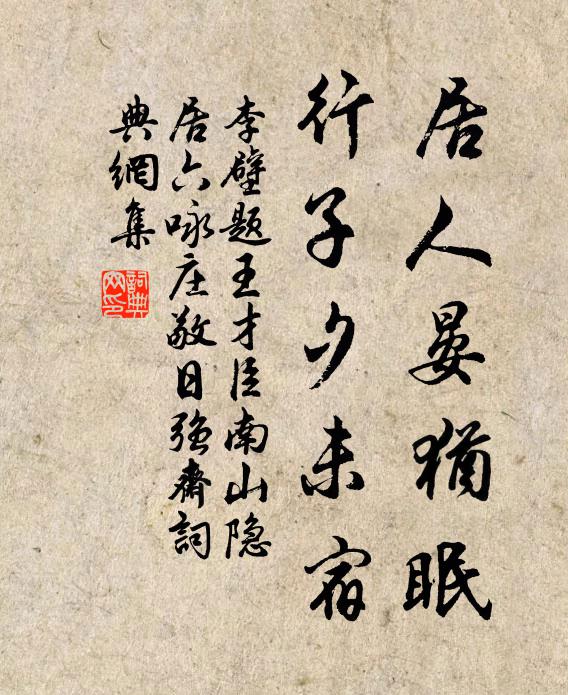 居人晏猶眠
行子夕未宿
李壁题王才臣南山隐
居六咏庄敬日强齋詞
典網集
詞典
网印